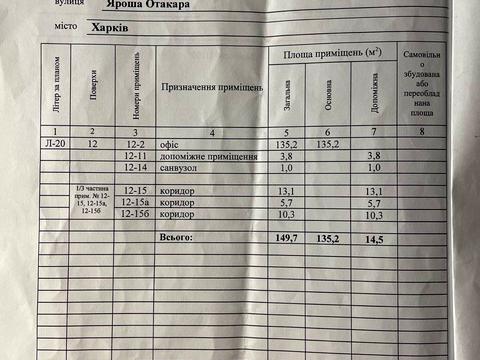 вулиця Яроша Отакара
місто Харків
Літер за планом
Поверхи
Номери приміщень
Призначення приміщень
Площа приміщень (м²)
Загальна
Основна
Допоміжна
Самовільн
о
збудована
або
переоблад
нана
площа
1 2 3 4 5 6 7 8
Л-20 12 12-2 офіс 135,2 135,2
12-11 допоміжне приміщення 3,8 3,8
12-14 санвузол 1,0 1,0
1/3 частина
прим. № 12-
15, 12-15а,
12-15б
12-15 коридор 13,1 13,1
12-15а коридор 5,7 5,7
12-15б коридор 10,3 10,3
Всього: 149,7 135,2 14,5